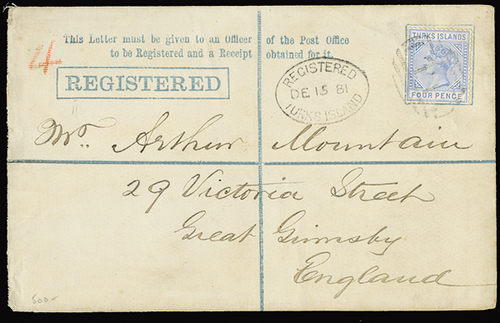 4
This Letter must be given to an Officer of the Post Office
to be Registered and a Receipt obtained for it.
REGISTERED
REGISTERED
DE 15 81
TURKS ISLAND
TURKS ISLANDS
FOUR PENCE
Mr. Arthur Mountain
29 Victoria Street
Great Grimsby
England
500-